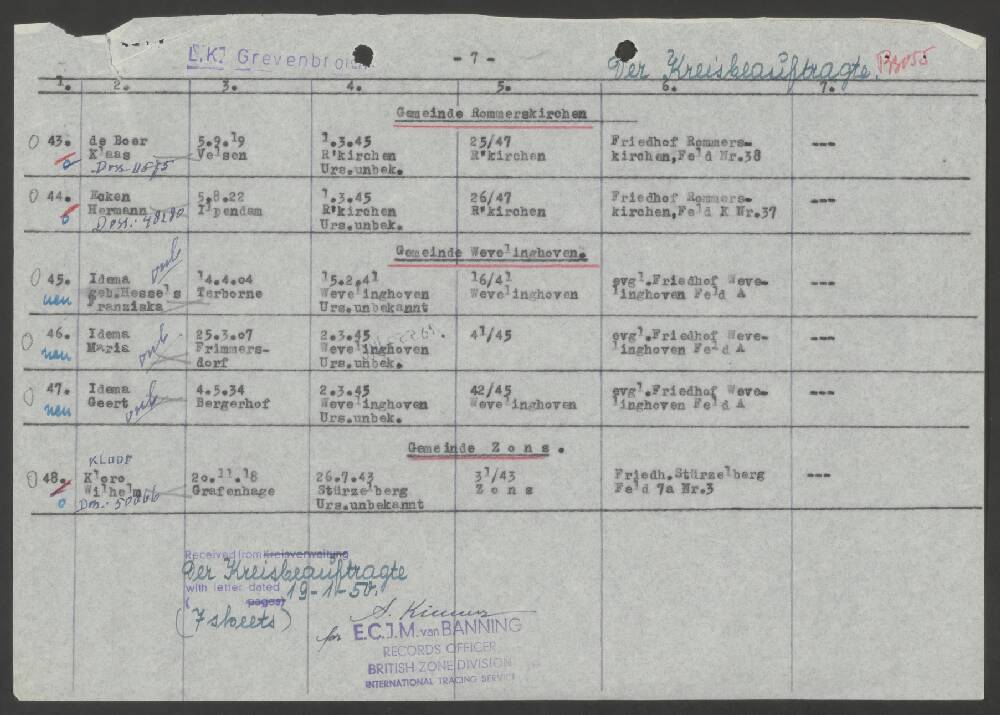 L.K. Grevenbroich - 7 - Der Kreisbeauftragte.
1. 2. 3. 4. 5. 6. 7.
Gemeinde Rommerskirchen
0 43. de Boer 5.9.19 1.3.45 25/47 Friedhof Rommers- ---
Klaas Velsen R'kirchen R'kirchen kirchen,Feld Nr.38
Urs.unbek.
0 44. Ecken 5.8.22 1.3.45 26/47 Friedhof Rommers- ---
Hermann Ilpendam R'kirchen R'kirchen kirchen,Feld K Nr.37
Doss.: 48280 Urs.unbek.
Gemeinde Wevelinghoven.
0 45. Idema 14.4.04 15.2.41 16/41 evgl.Friedhof Weve- ---
neu geb.Hessels Terborne Wevelinghoven Wevelinghoven linghoven Feld A
Franziska Urs.unbekannt
0 46. Idema 25.3.07 2.3.45 41/45 evgl.Friedhof Weve- ---
neu Maria Frimmers- Wevelinghoven linghoven Feld A
dorf Urs.unbek.
0 47. Idema 4.5.34 2.3.45 42/45 evgl.Friedhof Weve- ---
neu Geert Bergerhof Wevelinghoven Wevelinghoven linghoven Feld A
Urs.unbek.
Gemeinde Zons.
0 48. Kloro 20.11.18 26.7.43 31/43 Friedh.Stürzelberg ---
Wilhelm Grafenhage Stürzelberg Zons Feld 7a Nr.3
Urs.unbekannt
Received from Kreisverwaltung
Der Kreisbeauftragte
with letter dated 19-1-50.
( pages)
(7 sheets)
for E.C.J.M. van BANNING
RECORDS OFFICER
BRITISH ZONE DIVISION
INTERNATIONAL TRACING SERVICE